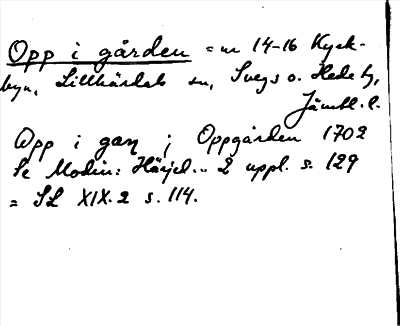 Opp i gården = nr 14-16 Kyrk-
byn, Lillhärdals sn, Svegs o. Hede tg,
Jämtl. l.
Opp i gaɳ ; Oppgården 1702
Se Modin: Härjed... 2 uppl. s. 129
= SL XIX. 2 s. 114.